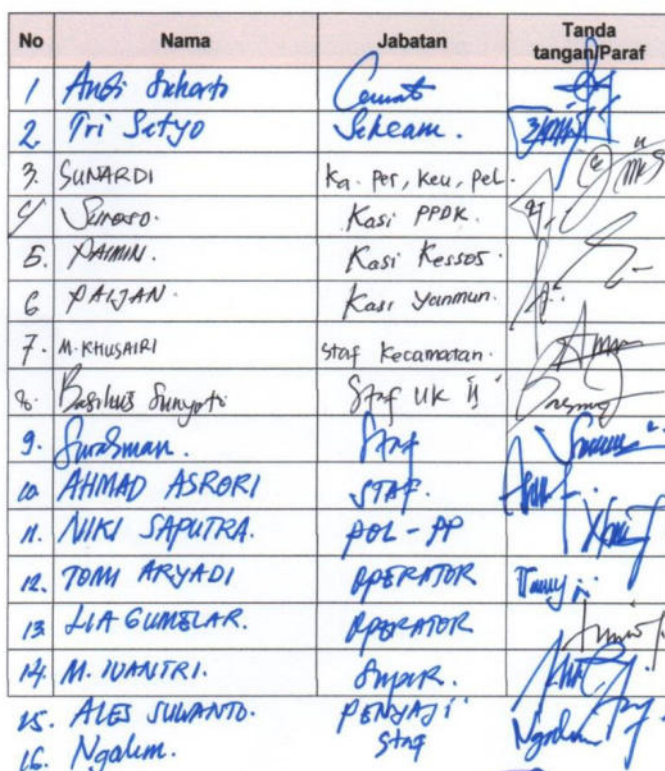 No Nama Jabatan Tanda tangan/Paraf
1 Andi Suharto Camat
2. Tri Setyo Sekcam.
3. SUNARDI Ka. Per, Keu, Pel.
4 Sunaso. Kasi PPDK.
5. PAIMIN. Kasi Kessos.
6 PAIJAN. Kasi Yanmum.
7. M. KHUSAIRI Staf Kecamatan.
8. Basilius Sunyoto Staf UK
9. Surahman. Staf
10. AHMAD ASRORI STAF.
11. NIKI SAPUTRA. POL-PP
12. TOMI ARYADI OPERATOR
13 LIA GUMELAR. OPERATOR
14. M. IVANTRI. Supir.
15. ALES SUWANTO. PENYAJI
16. Ngalim. Staf Ngalim